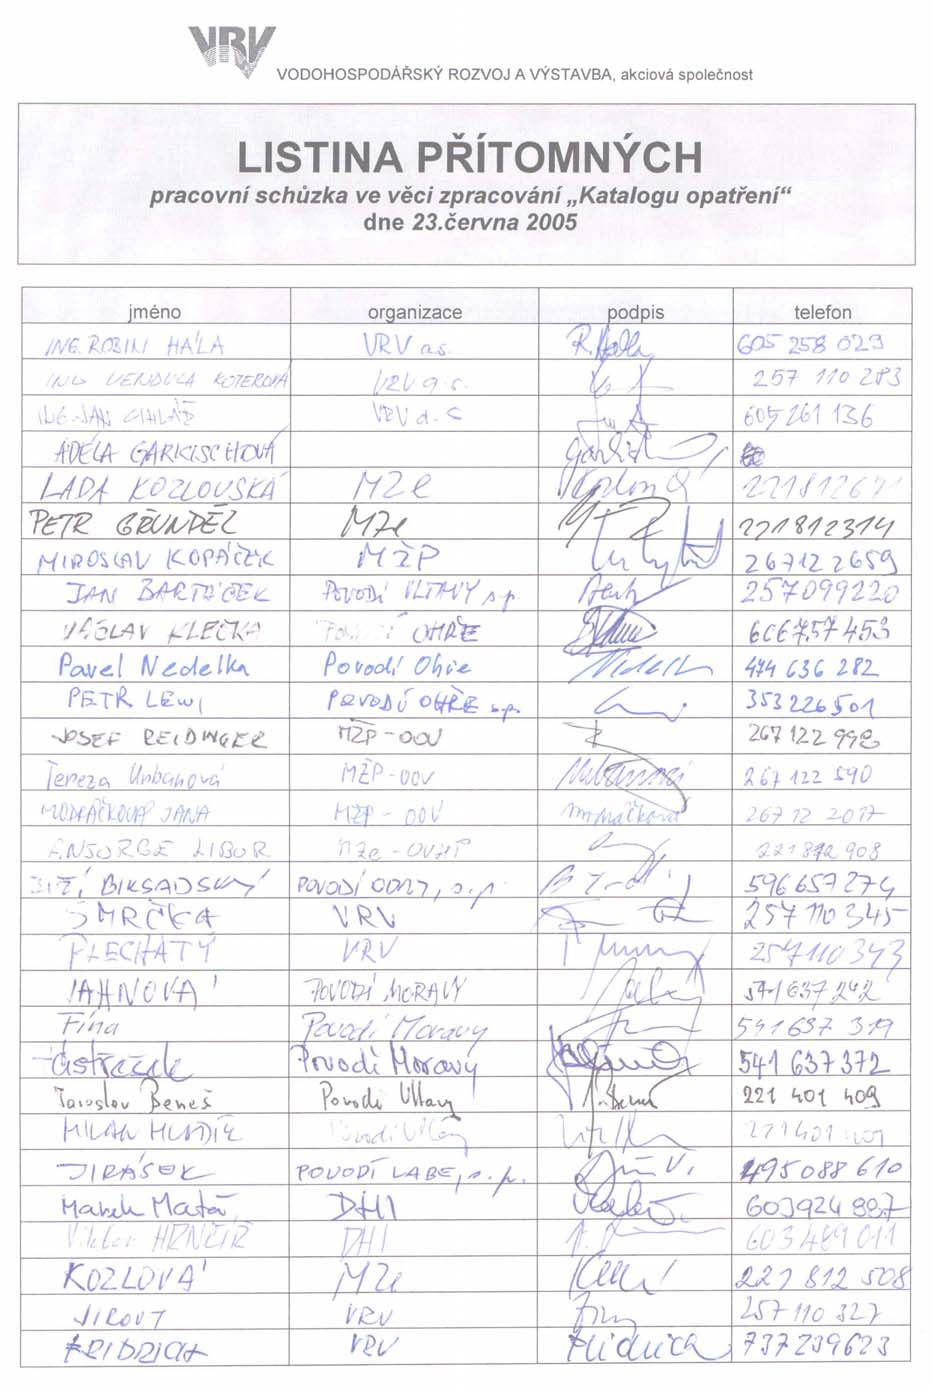 VRV
VODOHOSPODÁŘSKÝ ROZVOJ A VÝSTAVBA, akciová společnost
LISTINA PŘÍTOMNÝCH
pracovní schůzka ve věci zpracování „Katalogu opatření“
dne 23.června 2005
jméno organizace podpis telefon
ING. ROBIN HÁLA VRV a.s. R. Hála 605 258 029
ING VENDULA KOTEROVÁ VRV a.s. 257 110 283
ING. JAN CIHLÁŘ VRV a.s 605 261 136
ADÉLA GARKISCHOVÁ
LADA KOZLOVSKÁ MZe 221812671
PETR GRÜNDĚL MZe 221812314
MIROSLAV KOPÁČEK MŽP 267122659
JAN BARTÁČEK POVODÍ VLTAVY s.p. 257099220
VÁCLAV KLEČKA POVODÍ OHŘE 606757453
Pavel Nedelka Povodí Ohře 474 636 282
PETR LEWI POVODÍ OHŘE s.p. 353226501
JOSEF REIDINGER MŽP-OOV 267 122 998
Tereza Urbanová MŽP-OOV 267 122 590
MODRÁČKOVÁ JANA MŽP - OOV Modráčková 267 12 2017
ANSORGE LIBOR MZe - OVHP 221 812 908
JIŘÍ BIKSADSKÝ POVODÍ ODRY, s.p. 596657274
SMRČKA VRV 257 110 345
PLECHATÝ VRV 257110343
JAHNOVÁ POVODÍ MORAVY 541637242
Fína Povodí Moravy 541637 319
Povodí Moravy 541 637 372
Jaroslav Beneš Povodí Vltavy 221 401 409
MILAN HLADÍK Povodí Vltavy
JIRÁSEK POVODÍ LABE, s.p. 495088610
Marek Maťa DHI 603924887
Viktor HRNČÍŘ DHI 603 489 011
KOZLOVÁ MZe 221 812 508
JIROUT VRV 257 110 327
FRIDRICH VRV Fridrich 737239623